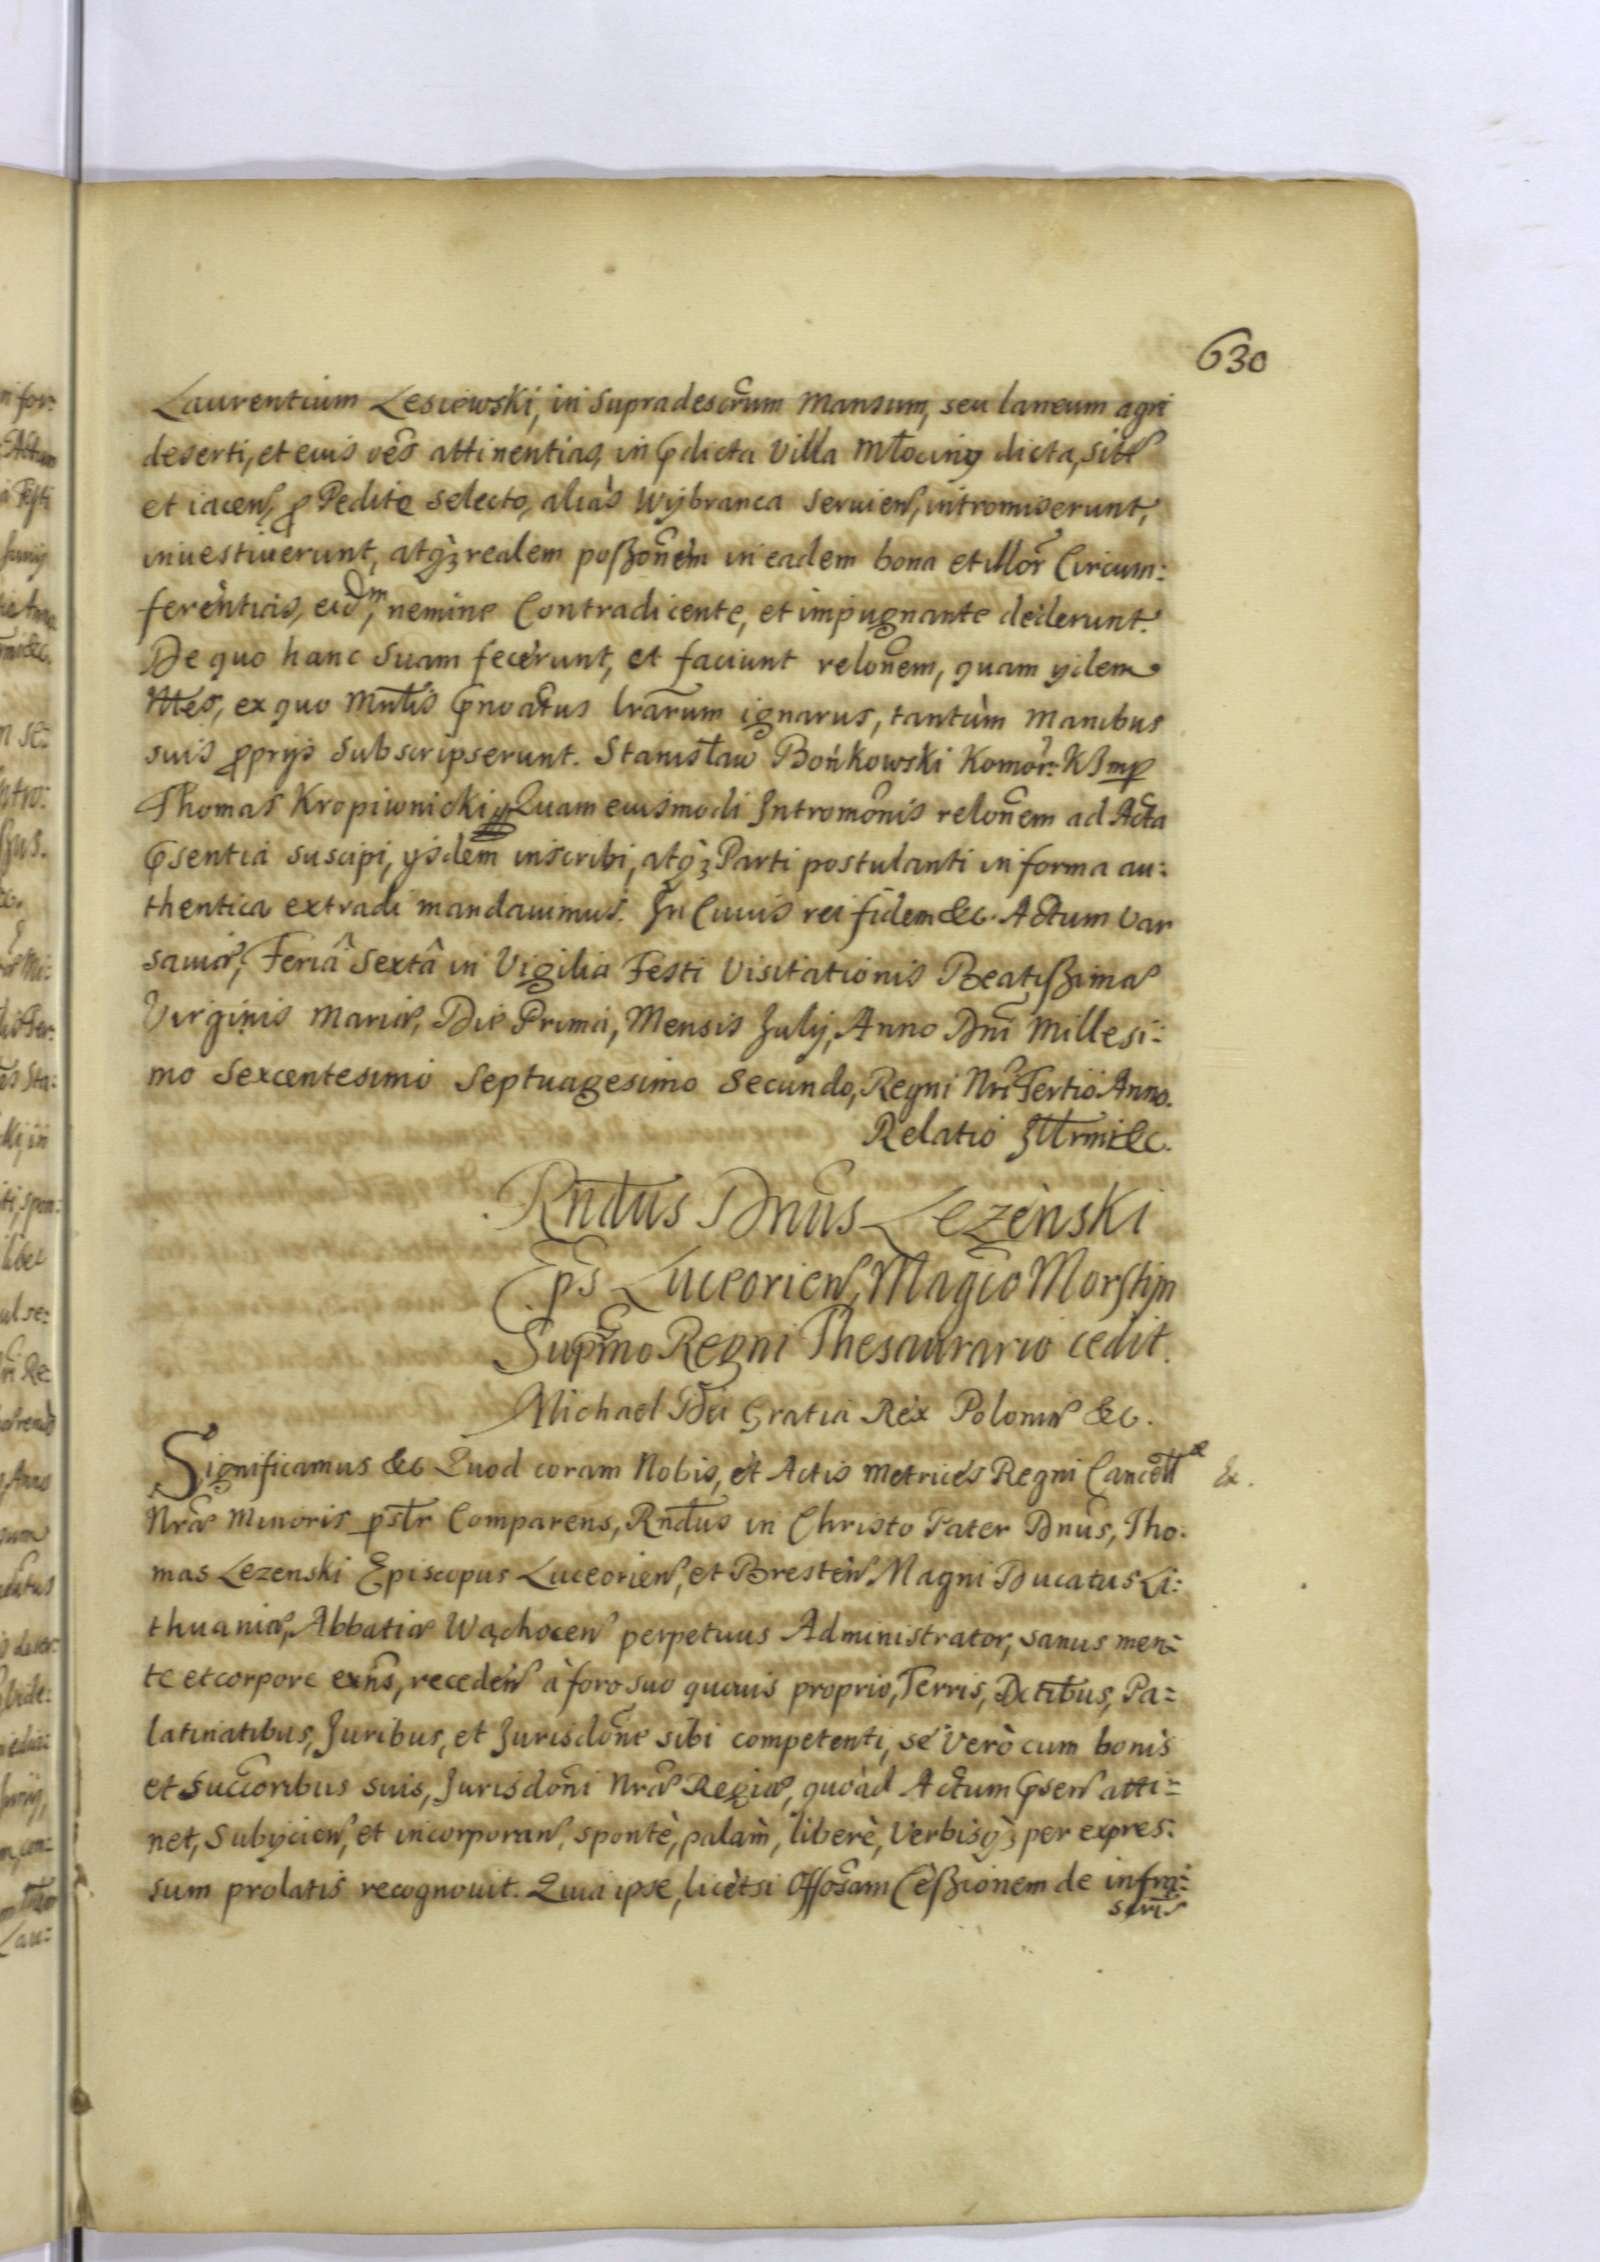 630
Laurentium Lesiowski, in supradescrum Mansum, seu laneum agri
deserti, et eius oēs attinentias, in pdicta Villa Młociny dicta, sit
et iacen, p Pedite selecto, aliàs Wybranca seruien, intromiserunt,
inuestiuerunt, atq3 realem poßonem in eadem bona et illor Circum:
ferentias, eidm, nemine Contradicente, et impugnante dederunt.
De quo hanc suam fecerunt, et faciunt relonem, quam ijdem
Ntes, ex quo Mntlis pnoātus lrarum ignarus, tantùm manibus
suis pprijs subscripserunt. Stanisław Bońkowski Komor: KJmp
Thomas Kropiwnicki Quam eiusmodi Intromonis relonem ad Acta
psentia suscipi, ysdem inscribi, atq3 Parti postulanti in forma au:
thentica extradi mandauimus. In Cuius rei fidem &c. Actum Var
sauiæ, Feriâ Sextâ in Vigilia Festi Visitationis Beatißimæ
Virginis Mariæ, Die Prima, Mensis July, Anno Dni Millesi:
mo Sexcentesimo Septuagesimo Secundo, Regni Nri Tertio Anno.
Relatio Illrmi &c.
Rndus Dnus Lezenski
Eps Luceorien, Magco Morstyn
Supmo Regni Thesaurario cedit.
Michael Dei Gratia Rex Poloniæ &c.
Significamus &c Quod coram Nobis, et Actis Metrices Regni Cancell &.
Nræ Minoris pstr Comparens, Rndus in Christo Pater Dnus, Tho:
mas Lezenski Episcopus Luceorien, et Bresten Magni Ducatus Li:
thuaniæ, Abbatiæ Wąchocen perpetuus Administrator, sanus men:
te et corpore exns, receden à foro suo quouis proprio, Terris, Dctibus, Pa:
latinatibus, Juribus, et Jurisdone sibi competenti, se verò cum bonis
et succoribus suis, Jurisdoni Nræ Regiæ, quoad Actum psen atti:
net, subycien, et incorporan, spontè, palàm, liberè, verbisq3 per expres:
sum prolatis recognouit. Quia ipse, licètsi Offosam Ceßionem de infra:
scris